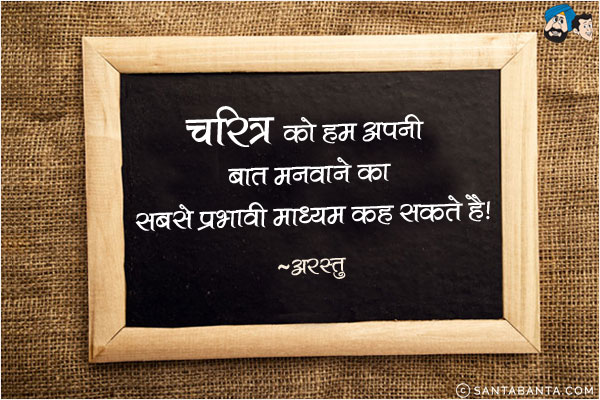 चरित्र को हम अपनी
बात मनवाने का
सबसे प्रभावी माध्यम कह सकते है!
~अरस्तु
© SANTABANTA.COM